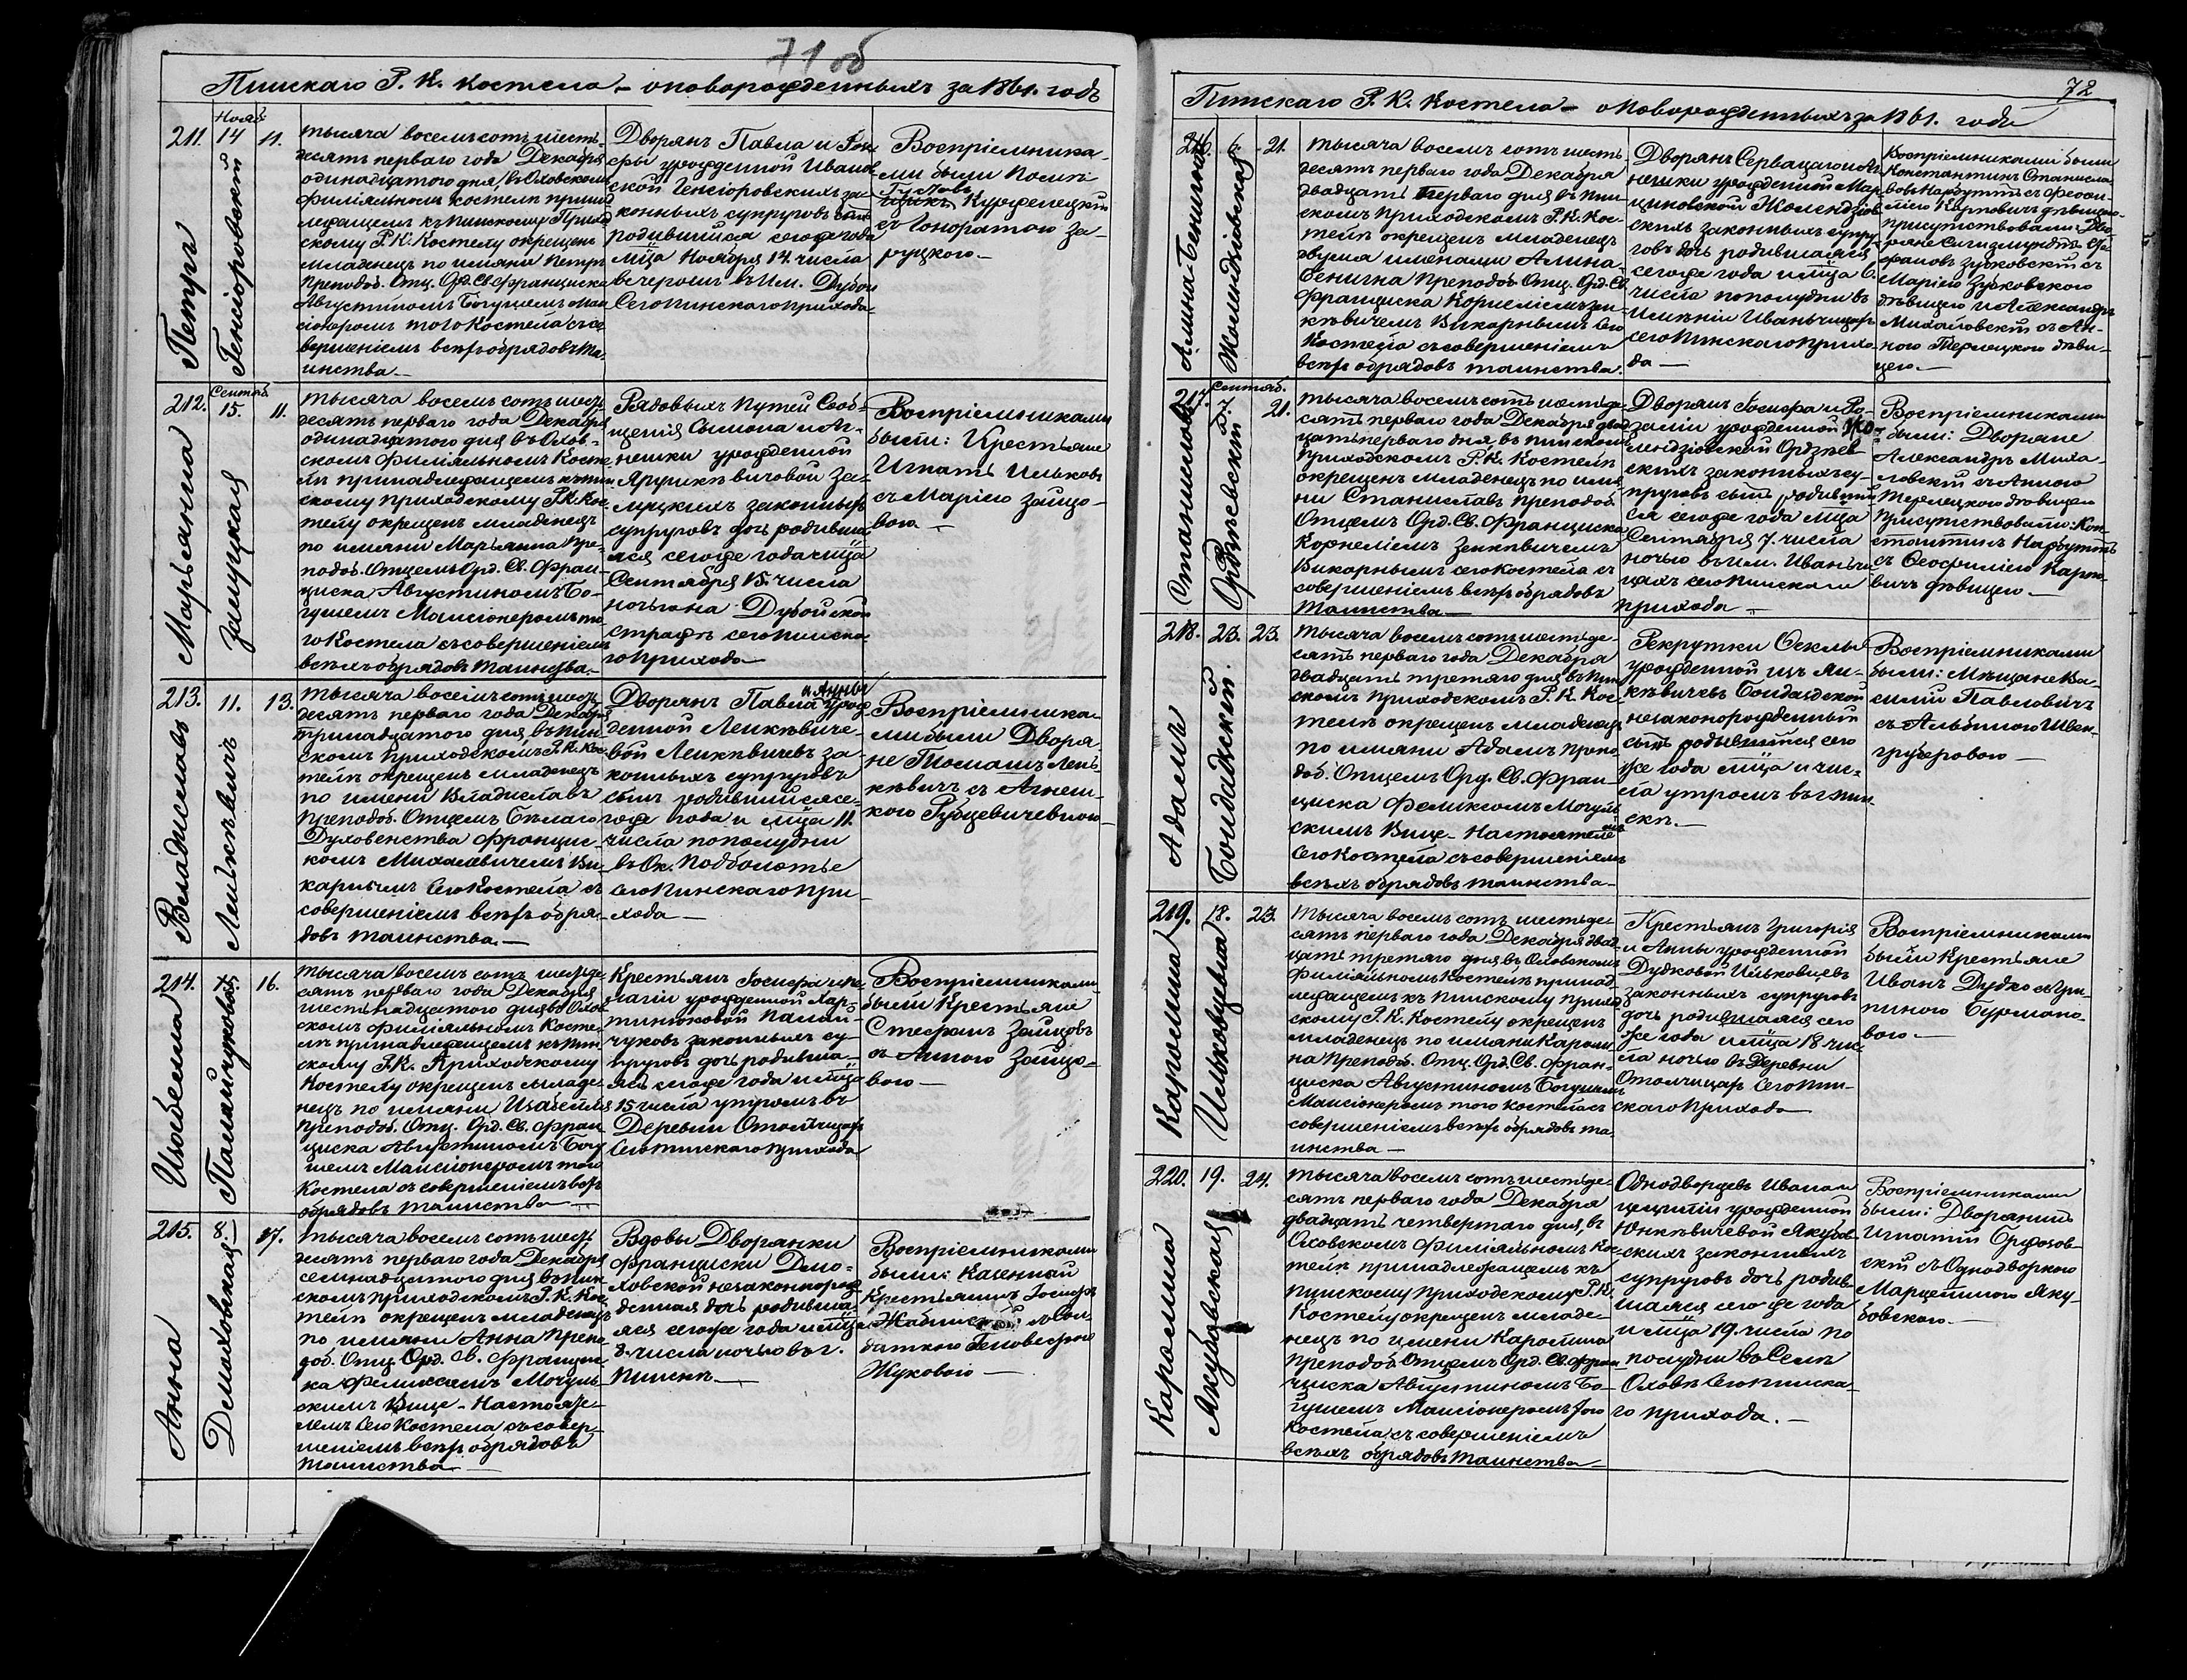 71 об
Пинскаго Р. К. костела – оноворожденныхъ за 1861. годъ
211.
Нояб.
14
11.
Петръ
Генсіоровскій
тысяча восемьсотъ шесть-
десятъ перваго года Декабря
одинадцатого дня, въ Оховскомъ
филіяльномъ костелѣ принад
лежащемъ къ Пинскому Приход
скому Р. К. Костелу окрещенъ
младенецъ по имяни Петръ
Преподоб. Отц. Орд. Св. Франциска
Августиномъ Богушемъ Ман
сіонеромъ того Костела съ со
вершеніемъ всѣхъ обрядовъ та-
инства. –
Дворянъ Павла и
урожденной Иванов
ской Генсіоровскихъ за-
конныхъ супруговъ сынъ
родившійся сегоже года
мѣца Ноября 14. числа
вечеромъ въ Им. Дубои
Сего Пинскаго прихода
Воспріемника-
ми были
Куржелецкій
съ Гоноратою За-
руцкого. –
212.
Сентяб
15.
11.
Марьянна
Зелицкая
тысяча восемьсотъ шесть
десятъ перваго года Декабря
одинадцатого дня въ Охов-
скомъ филіяльномъ Косте
лѣ принадлежащемъ къ Пин
скому приходскому Р. К. Кос-
телу окрещенъ младенецъ
по имяни Марьянна Пре-
подоб. Отцемъ Орд. Св. Фран-
циска Августиномъ Бо-
гушемъ Мансіонеромъ то
го Костела съ совершеніемъ
всѣхъ обрядовъ таинства. –
Рядовыхъ Путей Сооб-
щенія Сымона и Аг-
нешки урожденной
Ярушкѣвичовой Зе-
лицкихъ законныхъ
супруговъ дочь родивша
аяся сегоже года мѣца
Сентября 15. числа
ночью на Дубойской
стражѣ сего Пинска
го прихода –
Воспріемниками
были: Крестьяне
Игнатъ Ильковъ
съ Маріею Зайцо-
вою –
213.
11.
13.
Владиславъ
Ленкѣвичъ
тысяча восемьсотъ шесть
десятъ перваго года Декабря
тринадцатого дня, въ Пин
скомъ Приходскомъ Р. К. Кос
телѣ окрещенъ младенецъ
по имени Владиславъ
Преподоб. Отцемъ Бѣлаго
Духовенства Францис-
комъ Михалевичемъ Ви-
карнымъ сего Костела съ
совершеніемъ всѣхъ обря-
довъ таинства. –
Дворянъ Павла и Анны урож
денной Ленкѣвиче-
вой Ленкѣвичевъ за
конныхъ супруговъ
сынъ родившійся се-
гоже года и мѣца 11.
числа пополудни
въ Ок. Подболотье
Сего Пинскаго при-
хода –
Воспріемника-
ми были Дворя-
не Томашъ Лен-
кѣвичъ съ Агнеш-
кою Рубцевичевною
214.
15.
16.
Изабелла
Паламчуковая
тысяча восемь сотъ шестьде
сятъ перваго года Декабря
шестьнадцатого дня въ Охов
скомъ филіяльномъ Косте-
лѣ принадлежащемъ къ Пин
скому Р. К. Приходскому
Костелу окрещенъ младе-
нецъ по имяни Изабелла
Преподоб. Отц. Орд. Св. Фран
циска Августиномъ Богу
шемъ Мансіонеромъ того
Костела съ совершеніемъ всѣхъ
обрядовъ таинства –
Крестьянъ Іосифа и
урожденной Хар-
тинюковой Палам-
чуковъ законныхъ су-
пруговъ дочь родивша-
яся сегоже года и мѣца
15 числа утромъ въ
Деревни Отолчицахъ
Сего Пинскаго прихода
Воспріемниками
были Крестьяне
Стефанъ Зайцовъ
съ Анною Зайцо-
вою –
215.
8.
17.
Анна
Дмоховская
тысяча восемьсотъ шесть
десятъ перваго года Декабря
семнадцатого дня въ Пин
скомъ приходскомъ Р. К. Кос-
телѣ окрещенъ младенецъ
по имяни Анна Препо-
доб. Отц. Орд. Св. Францис-
ка Феликсомъ Мочуль-
скимъ Вице-Настояте-
лемъ сего Костела съ совер-
шеніемъ всѣхъ обрядовъ
таинства –
Вдовы Дворянки
Франциски Дмо-
ховской незаконорож
денная дочь родивша-
яся сегоже года и мѣца
8. числа ночью въ г.
Пинскѣ. –
Воспріемниками
были: Казенный
Крестьянинъ Іосифъ
съ Сол-
даткою Геновефою
Жуковою –
72
Пинскаго Р. К. Костела – оноворожденныхъ за 1861. года
216.
6.
21.
Алина-Бенигна
Жолендзіовская
тысяча восемь сотъ шесть
десятъ перваго года Декабря
двадцать перваго дня въ Пин
скомъ приходскомъ Р. К. Кос-
телѣ окрещенъ младенецъ
двумя именами Алина-
Бенигна Преподоб. Отц. Орд. Св
Франциска Корнеліемъ Зен-
кѣвичемъ Викарнымъ Сего
Костела съ совершеніемъ
всѣхъ обрядовъ таинства.
Дворянъ Серваціго и Аг
нешки урожденной Мар-
циновской Жолендзіов
скихъ законныхъ супру-
говъ дочь родившаяся
сегоже года и мѣца 6.
числа пополудни въ
Имѣніи Иванчицахъ
сего Пинскаго прихо-
да –
Воспріемниками были
Константинъ Станисла-
вовъ Нарбуттъ съ Феофи-
лею Карповичъ дѣвицею
присутствовали: Дво-
ряне Сигизмундъ Сте-
фановъ Зубковскій съ
Маріею Зубковского
дѣвицею и Александръ
Михаловскій съ Ан-
ною Терлецкого дѣви-
цею. –
217.
Сентяб.
7.
21.
Станиславъ
Орджевскій
тысяча восемьсотъ шестьде-
сятъ перваго года Декабря двад
цать перваго дня, въ Пинскомъ
Приходскомъ Р. К. Костелѣ
окрещенъ младенецъ по имя-
ни Станиславъ Преподоб.
Отцемъ Орд. Св. Франциска
Корнеліемъ Зенкѣвичемъ
Викарнымъ сего Костела съ
совершеніемъ всѣхъ обрядовъ
таинства –
Дворянъ Іосифа и Ро-
заліи урожденной Жо-
лендзіовской Орджев-
скихъ законныхъ су-
пруговъ сынъ родивший
ся сегоже года мѣца
Сентября 7. числа
ночью въ им. Иванчи-
цахъ сего Пинскаго
прихода –
Воспріемниками
были: Дворяне
Александръ Миха-
ловскій съ Анною
Терлецкого дѣвицею
Присутствовали: Кон-
стантинъ Нарбуттъ
съ Феофилею Карпо-
вичъ дѣвицею. –
218.
23.
23.
Адамъ
Бондадзкій
тысяча восемь сотъ шестьде-
сятъ перваго года Декабря
двадцать третяго дня, въ Пин
скомъ приходскомъ Р. К. Кос-
телѣ окрещенъ младенецъ
по имяни Адамъ Препо-
доб. Отцемъ Орд. Св. Фран-
циска Феликсомъ Мочуль
скимъ Вице-Настоятелемъ
Сего Костела съ совершеніемъ
всѣхъ обрядовъ таинства –
Рекрутки Феклы
урожденной изъ Ян-
кѣвичевъ Бондадзкой
незаконорожденный
сынъ родывшійся сего
же года мѣца и чис-
ла утромъ въ г. Пин
скѣ. –
Воспріемниками
были: Мѣщане Ва-
силій Павловичъ
съ Альбиною Швен-
груберовою –
219.
18.
23.
Каролина
Ильковцевна
тысяча восемь сотъ шестьде
сятъ перваго года Декабря двад
цать третяго дня, въ Оховскомъ
филіяльномъ Костелѣ принад
лежащемъ къ Пинскому Приход
скому Р. К. Костелу окрещенъ
младенецъ по имяни Кароли
на Преподоб. Отц. Орд. Св. Фран-
циска Августиномъ Богушемъ
Мансіонеромъ того Костела съ
совершеніемъ всѣхъ обрядовъ та-
инства –
Крестьянъ Григорія
и Анны урожденной
Дудковой Ильковцевъ
законныхъ супруговъ
дочь родившаяся сего
же года и мѣца 18 чис-
ла ночью въ Деревни
Отолчицахъ Сего Пин-
скаго прихода –
Воспріемниками
были Крестьяне
Иванъ Дудко съ
Бурмако-
вою –
220.
19.
24.
Каролина
Якубовская
тысяча восемь сотъ шестьде-
сятъ перваго года Декабря
двадцать четвертого дня, въ
Оховскомъ филіяльномъ Кос-
телѣ принадлежащемъ къ
Пинскому приходскому Р. К.
Костелу окрещенъ младе-
нецъ по имени Каролина
Преподоб. Отцемъ Орд. Св. Фран
циска Августиномъ Бо-
гушемъ Мансіонеромъ того
Костела, съ совершеніемъ
всѣхъ обрядовъ таинства –
Однодворцевъ Ивана и
урожденной
Юнкѣвичевой Якубов-
скихъ законныхъ
супруговъ дочь родив-
шаяся сегоже года
и мѣца 19. числа по
полудни въ Селѣ
Оховѣ Сего Пинска-
го прихода. –
Воспріемниками
были: Дворянинъ
Игнатій Орджов-
скій съ Однодворкою
Марцелиною Яку-
бовскою. –